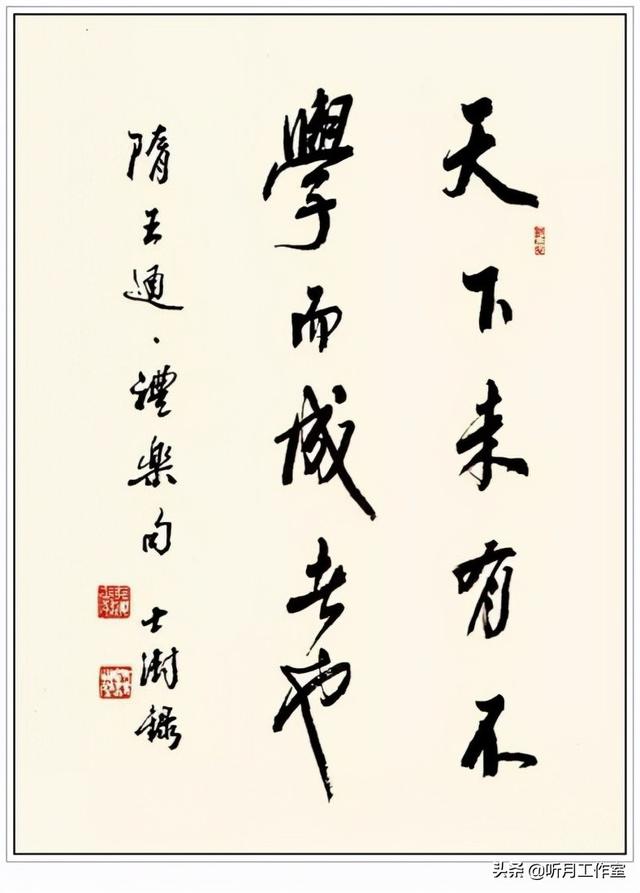 天下未有不
學而成者也
隋王通·禮樂句 士澍錄
头条 @听月工作室